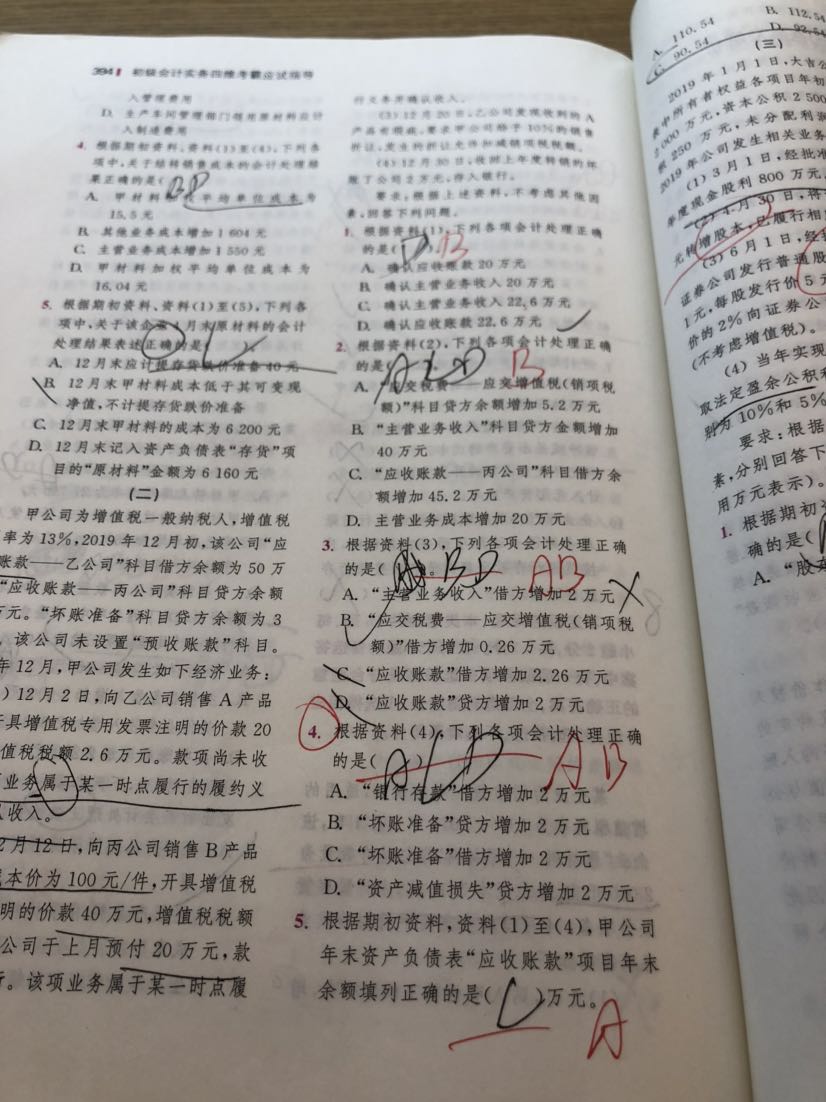 394 初级会计实务四维考霸应试指导
入管理费用
D. 生产车间管理部门领用原材料应计
入制造费用
4. 根据期初资料、资料(1)至(4),下列各
项中,关于结转销售成本的会计处理结
果正确的是( BD
A. 甲材料 平均单位成本为
15.5元
B. 其他业务成本增加1 604元
C. 主营业务成本增加1 550元
D. 甲材料加权平均单位成本为
16.04元
5. 根据期初资料、资料(1)至(5),下列各
项中,关于该企业 月末原材料的会计
处理结果表述正确的是( )。
A. 12月末应计提存货跌价准备40元
B. 12月末甲材料成本低于其可变现
净值,不计提存货跌价准备
C. 12月末甲材料的成本为6 200元
D. 12月末记入资产负债表“存货”项
目的“原材料”金额为6 160元
(二)
甲公司为增值税一般纳税人,增值税
率为13%,2019年12月初,该公司“应
账款——乙公司”科目借方余额为50万
“应收账款——丙公司”科目贷方余额
万元。“坏账准备”科目贷方余额为3
,该公司未设置“预收账款”科目。
年12月,甲公司发生如下经济业务:
)12月2日,向乙公司销售A产品
开具增值税专用发票注明的价款20
值税税额2.6万元。款项尚未收
业务属于某一时点履行的履约义
收入。
2月12日,向丙公司销售B产品
本价为100元/件,开具增值税
明的价款40万元,增值税税额
公司于上月预付20万元,款
。该项业务属于某一时点履
行义务并确认收入。
(3)12月20日,乙公司发现收到的A
产品有瑕疵,要求甲公司给予10%的销售
折让,发生的折让允许扣减销项税税额。
(4)12月30日,收回上年度转销的坏
账了公司2万元,存入银行。
要求:根据上述资料,不考虑其他因
素,回答下列问题。
1. 根据资料(1),下列各项会计处理正确
的是( D B
A. 确认应收账款20万元
B. 确认主营业务收入20万元
C. 确认主营业务收入22.6万元
D. 确认应收账款22.6万元
2. 根据资料(2),下列各项会计处理正确
的是 ACD B
A. 交税费——应交增值税(销项税
额)”科目贷方余额增加5.2万元
B. “主营业务收入”科目贷方金额增加
40万元
C. “应收账款——丙公司”科目借方余
额增加45.2万元
D. 主营业务成本增加20万元
3. 根据资料(3),下列各项会计处理正确
的是( BD 。 AB
A. “主营业务收入”借方增加2万元
B. “应交税费——应交增值税(销项税
额)”借方增加0.26万元
C. “应收账款”借方增加2.26万元
D. “应收账款”贷方增加2万元
4. 根据资料(4),下列各项会计处理正确
的是( ACD AB
A. “银行存款”借方增加2万元
B. “坏账准备”贷方增加2万元
C. “坏账准备”借方增加2万元
D. “资产减值损失”贷方增加2万元
5. 根据期初资料,资料(1)至(4),甲公司
年末资产负债表“应收账款”项目年末
余额填列正确的是( C )万元。
A
A. 110.54 B. 112.54
C. 90.54 D. 92.54
(三)
2019年1月1日,大吉公
表中所有者权益各项目年初
000万元,资本公积2 500
积250万元,未分配利润
2019年公司发生相关业务
(1)3月1日,经批准
年度现金股利800万元
(2)4月30日,将
元转增股本,已履行相
(3)6月1日,经
证券公司发行普通股
1元,每股发行价5元
价的2%向证券公
(不考虑增值税)。
(4)当年实现
取法定盈余公积和
别为10%和5%
要求:根据
素,分别回答下
用万元表示)。
1. 根据期初
确的是(
A. “股